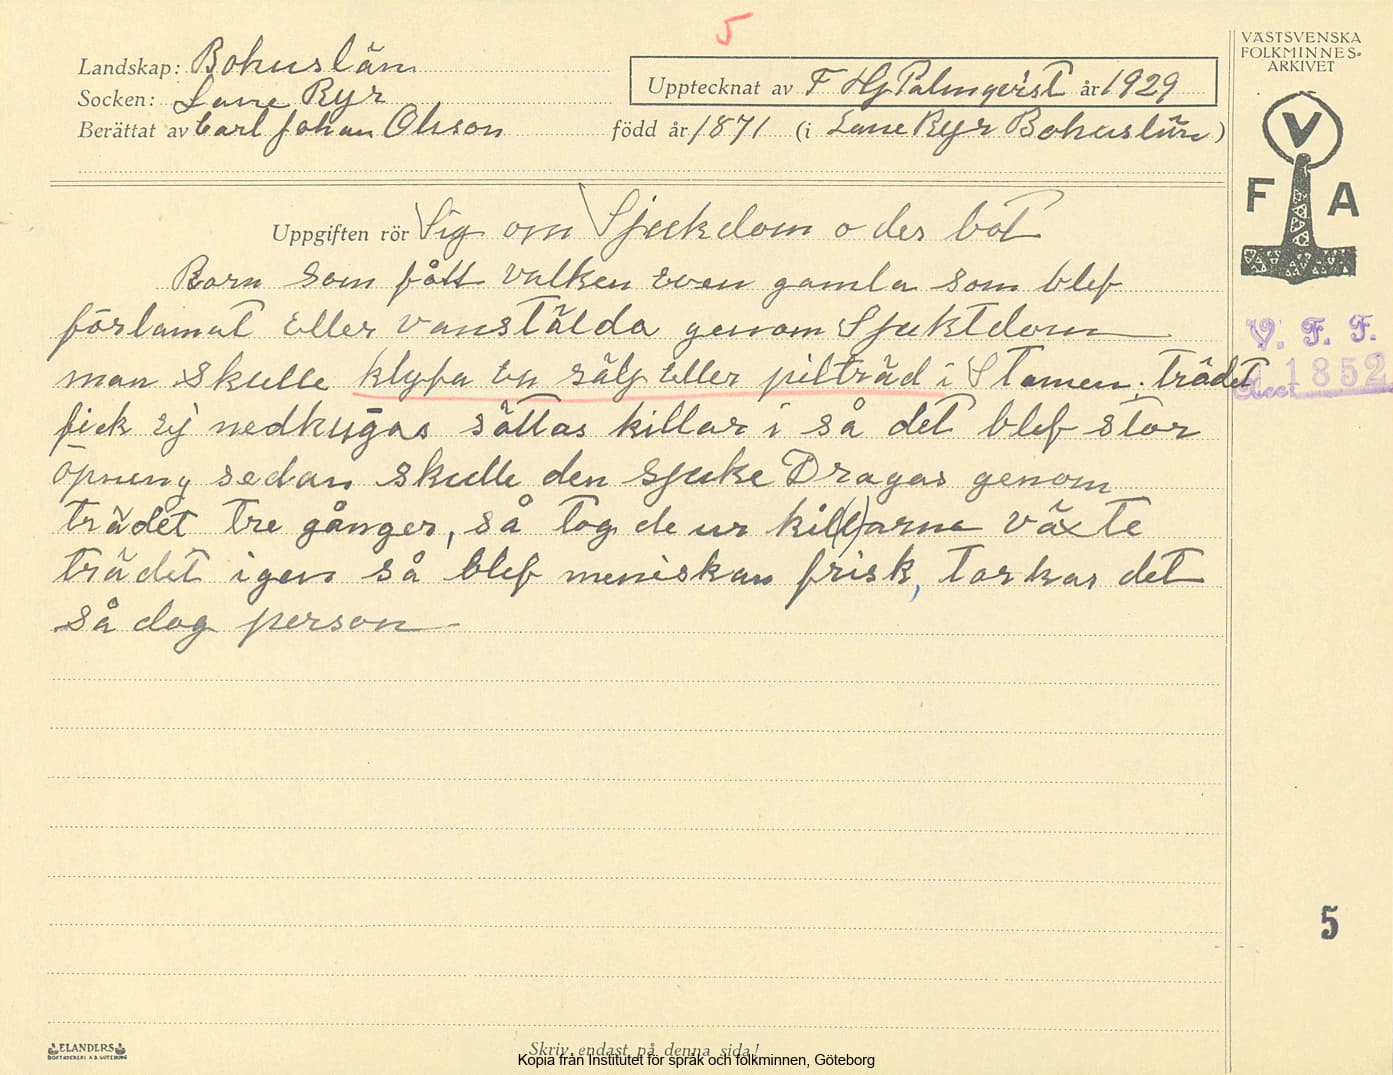 5
Landskap: Bohuslän
Socken: Lane Ryr
Upptecknat av F Hj Palmqvist år 1929
Berättat av Carl Johan Olsson född år 1871 (i Lane Ryr Bohuslän)
VÄSTSVENSKA
FOLKMINNES-
ARKIVET
V
F A
V. F. F.
Acc. 1852
Uppgiften rör Sig om Sjukdom o des bot
Barn som fått valken även gamla som blef
förlamat eller vanstälda genom Sjuktdom
man skulle klyfa en sälg eller pilträd i Stamen. trädet
fick ej nedhugas sättas killar i så det blef stor
öpneng sedan skulle den sjuke Dragas genom
trädet tre gånger, så tog de ur kil(l)arne växte
trädet igen så blef meniskan frisk, torkas det
så dog person
5
ELANDERS
BOKTRYCKERI A.B. GÖTEBORG
Skriv endast på denna sida!
Kopia från Institutet för språk och folkminnen, Göteborg